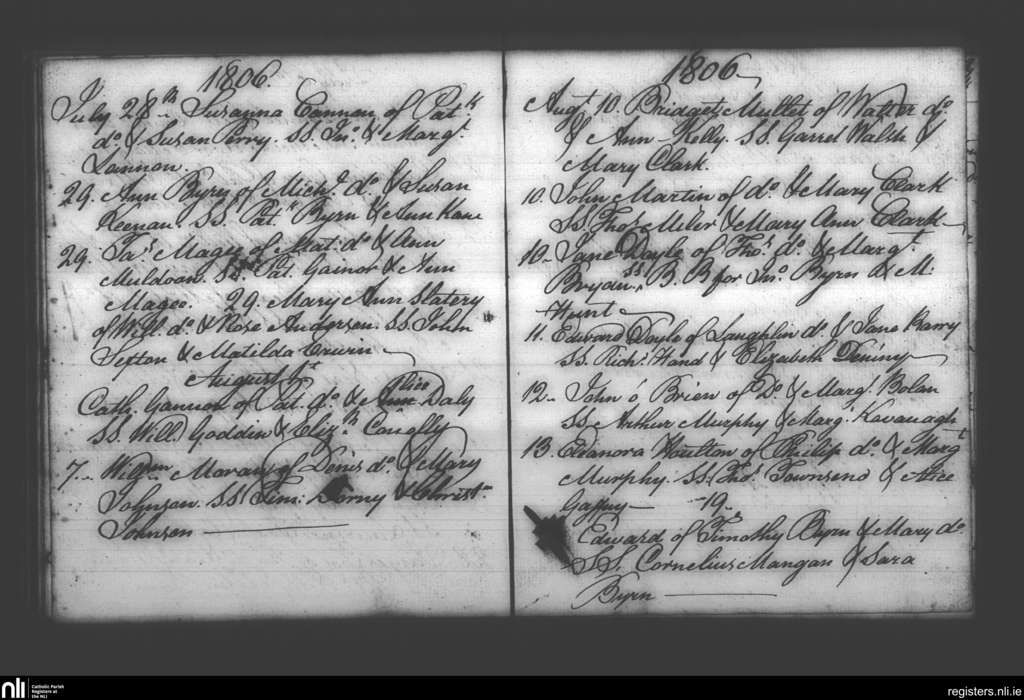 1806.
July 28th Susanna Cannon of Patk
do & Susan Perry. SS. Jno. & Margt.
Cannon.
29. Ann Byrn of Michl. do. & Susan
Keenan. SS. Patk. Byrn & Ann Kane
29. Jas. Magee of Mat. do & Ann
Muldoon. SS. Pat. Gainor & Ann
Magee. 29. Mary Ann Slatery
of Will. do. & Rose Anderson. SS. John
Sexton & Matilda Erwin
August 1st
Cath. Gannon of Pat. do & Alice Daly
SS. Will. Goddin & Elizth. Conolly
7. Willm. Moran of Denis do. & Mary
Johnson. SS. Tim: & Christ.
Johnson
1806
Augt. 10. Bridget Mullet of Walter do.
& Ann Kelly. SS. Garret Walsh &
Mary Clark.
10. John Martin of do. & Mary Clark
SS. Thos. Miler & Mary Ann Clark
10. Jane Doyle of Thos. do. & Margt.
Bryan. SS. B. B for Jno. Byrn & M.
Hunt
11. Edward Doyle of Laughlin do. & Jane Barry
SS. Richd. Hand & Elizabeth Deniny
12. John ó Brien of Do. & Margt. Bolan
SS. Arthur Murphy & Margt. Kavanagh
13. Eleanora Houlton of Philip do. & Margt
Murphy. SS. Thos. Townsend & Alice
Gaffny 19.
Edward of Timothy Byrn & Mary do.
SS. Cornelius Mangan & Sara
Byrn
nli
Catholic Parish
Registers at
the NLI
registers.nli.ie